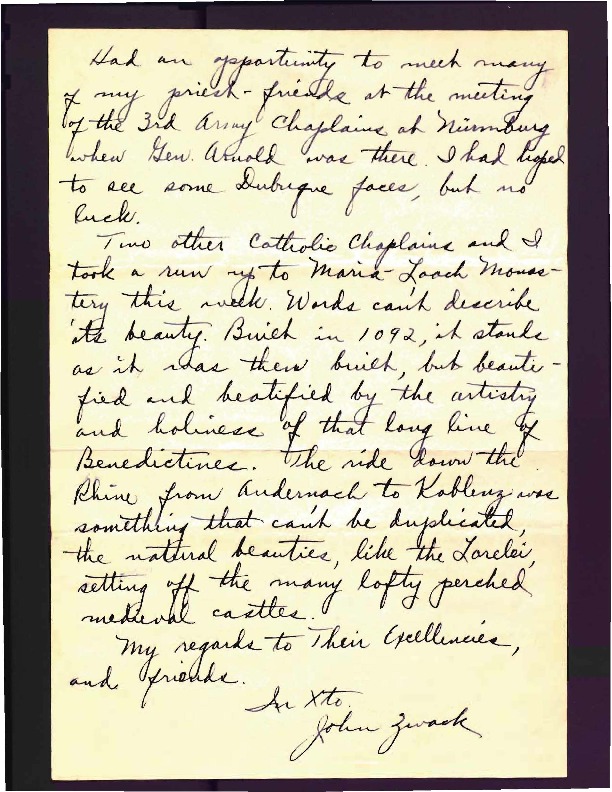 Had an opportunity to meet many
of my priest-friends at the meeting
of the 3rd Army Chaplains at Nürnburg
when Gen. Arnold was there. I had hoped
to see some Dubuque faces, but no
luck.
Two other Catholic Chaplains and I
took a run up to Maria-Laach Monas-
tery this week. Words can't describe
its beauty. Built in 1092, it stands
as it was then built, but beauti-
fied and beatified by the artistry
and holiness of that long line of
Benedictines. The ride down the
Rhine from Andernach to Koblenz was
something that can't be duplicated,
the natural beauties, like the Lorelei,
setting off the many lofty perched
medieval castles.
My regards to Their Excellencies,
and friends.
In Xto.
John Zwack